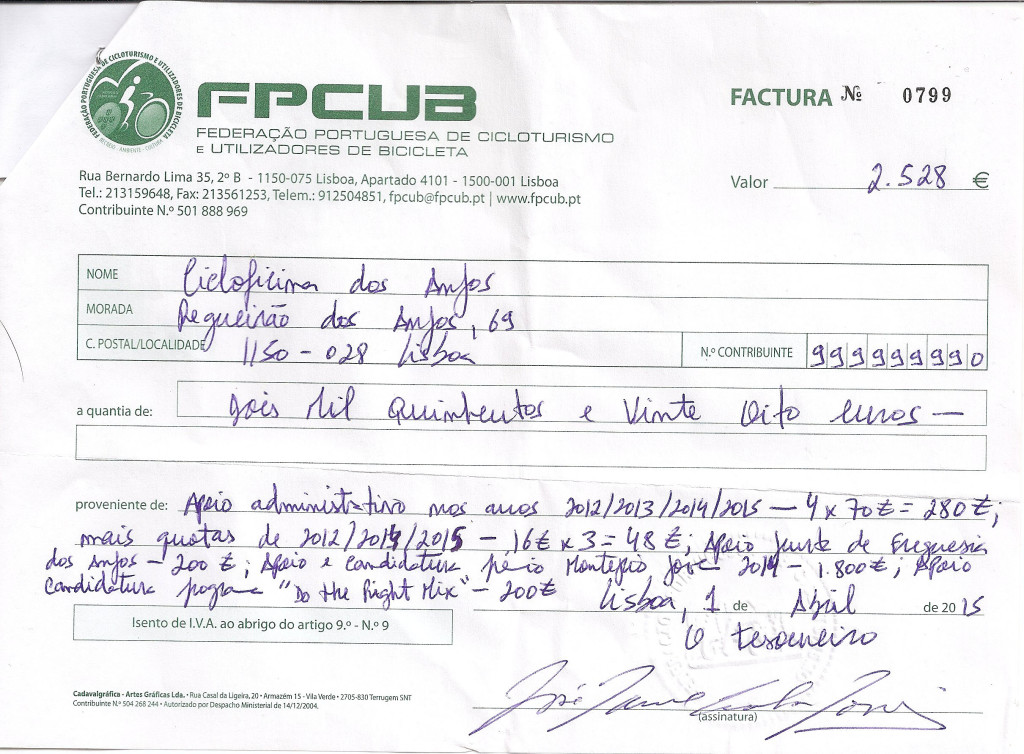 FEDERAÇÃO PORTUGUESA DE CICLOTURISMO E UTILIZADORES DE BICICLETA
RECREIO - AMBIENTE - CULTURA
FPCUB
FEDERAÇÃO PORTUGUESA DE CICLOTURISMO
E UTILIZADORES DE BICICLETA
FACTURA Nº 0799
Rua Bernardo Lima 35, 2º B - 1150-075 Lisboa, Apartado 4101 - 1500-001 Lisboa
Tel.: 213159648, Fax: 213561253, Telem.: 912504851, fpcub@fpcub.pt | www.fpcub.pt
Contribuinte N.º 501 888 969
Valor 2.528 €
NOME Cicloficina dos Anjos
MORADA Regueirão dos Anjos, 69
C. POSTAL/LOCALIDADE 1150-028 Lisboa
N.º CONTRIBUINTE 999999990
a quantia de: Dois Mil Quinhentos e Vinte Oito euros —
proveniente de: Apoio administrativo nos anos 2012/2013/2014/2015 — 4 x 70€ = 280€;
mais quotas de 2012/2014/2015 - 16€ x 3 = 48€; Apoio Junta de Freguesia
dos Anjos - 200€; Apoio e candidatura Montepio 2014 - 1.800€; Apoio
candidatura "Do the Right Mix" - 200€
Lisboa, 1 de Abril de 2015
O tesoureiro
Isento de I.V.A. ao abrigo do artigo 9.º - N.º 9
José
(assinatura)
Cadavalgráfica - Artes Gráficas Lda. • Rua Casal da Ligeira, 20 • Armazém 15 - Vila Verde • 2705-830 Terrugem SNT
Contribuinte N.º 504 268 244 • Autorizado por Despacho Ministerial de 14/12/2004.